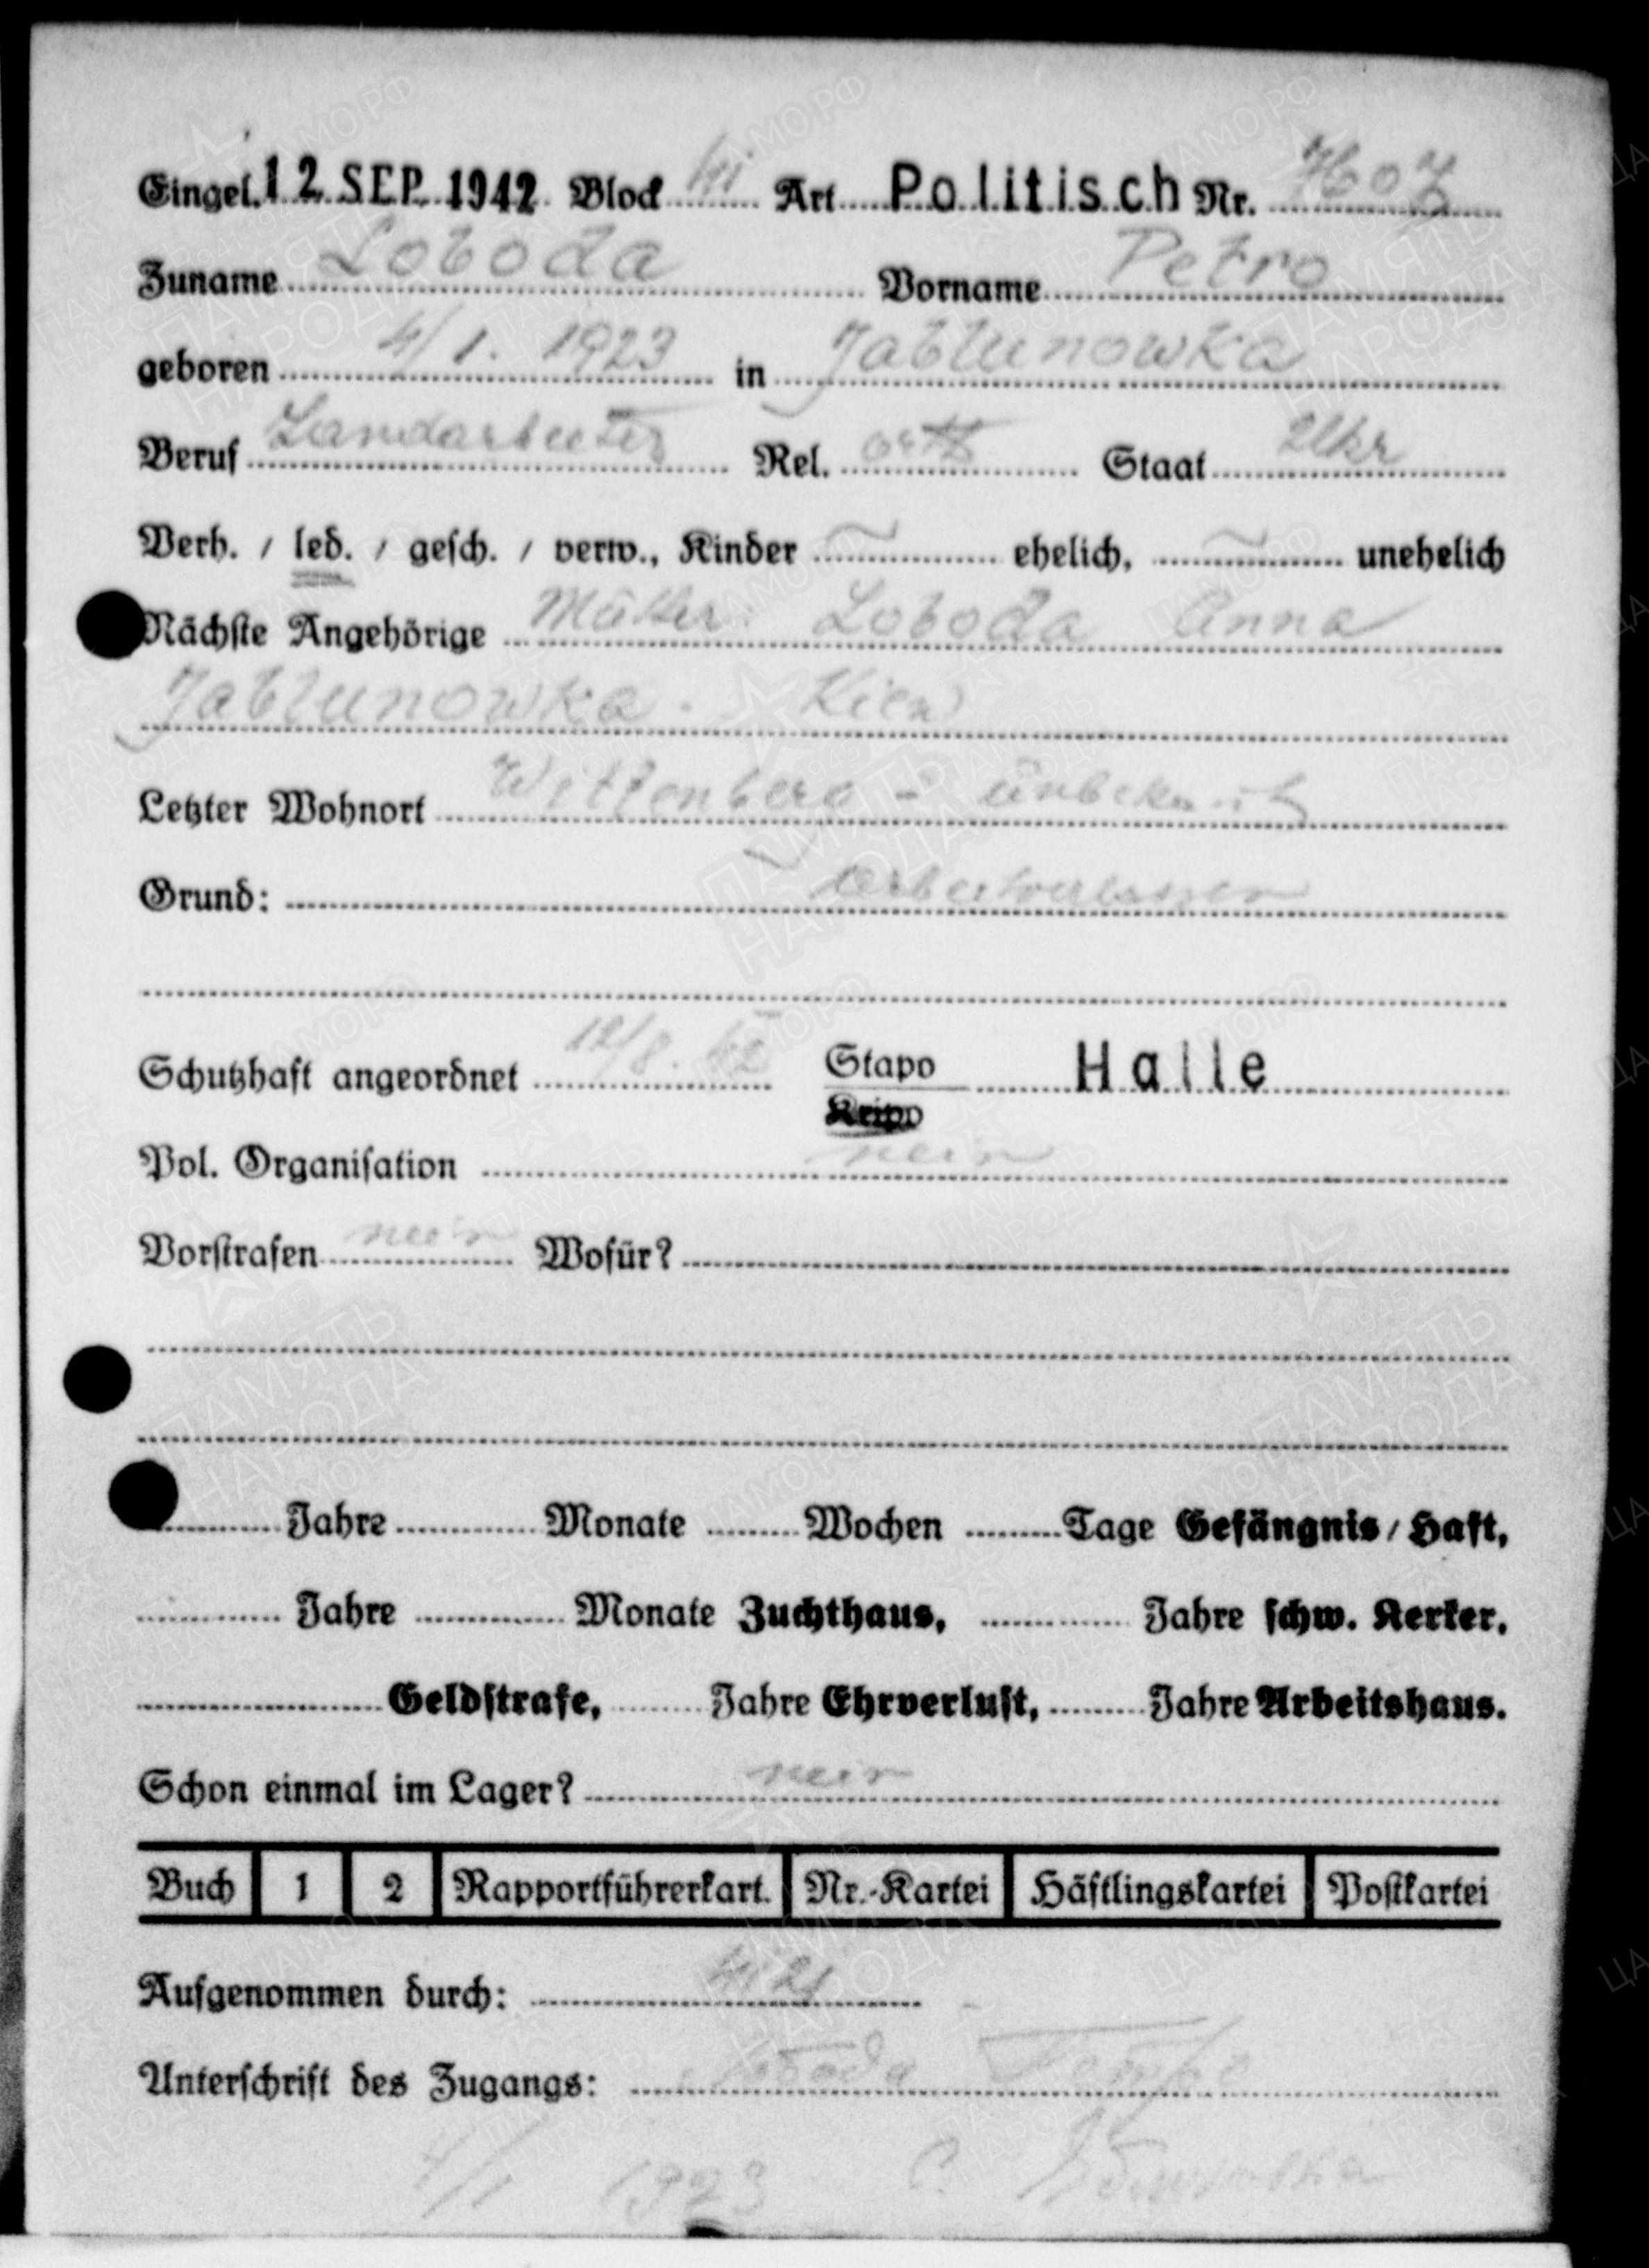 Eingel. 12. SEP. 1942 Block Art Politisch Nr.
Zuname Loboda Vorname Petro
geboren 4/1. 1923 in Jablunowka
Beruf Landarbeiter Rel. orth Staat Ukr
Verh. / led. / gesch. / verw., Kinder – ehelich, – unehelich
Nächste Angehörige Mutter. Loboda Anna
Jablunowka. Kiew
Letzter Wohnort Wittenberg - unbekannt
Grund: Arbeitverlassen
Schutzhaft angeordnet 12/8. 42 Stapo Halle
Kripo
Pol. Organisation nein
Vorstrafen nein Wofür?
Jahre Monate Wochen Tage Gefängnis / Haft,
Jahre Monate Zuchthaus, Jahre schw. Kerker,
Geldstrafe, Jahre Ehrverlust, Jahre Arbeitshaus.
Schon einmal im Lager? nein
Buch 1 2 Rapportführerkart. Nr.-Kartei Häftlingskartei Postkartei
Aufgenommen durch:
Unterschrift des Zugangs:
4/1 1923 с.
ПАМЯТЬ НАРОДА
ЦАМО.РФ